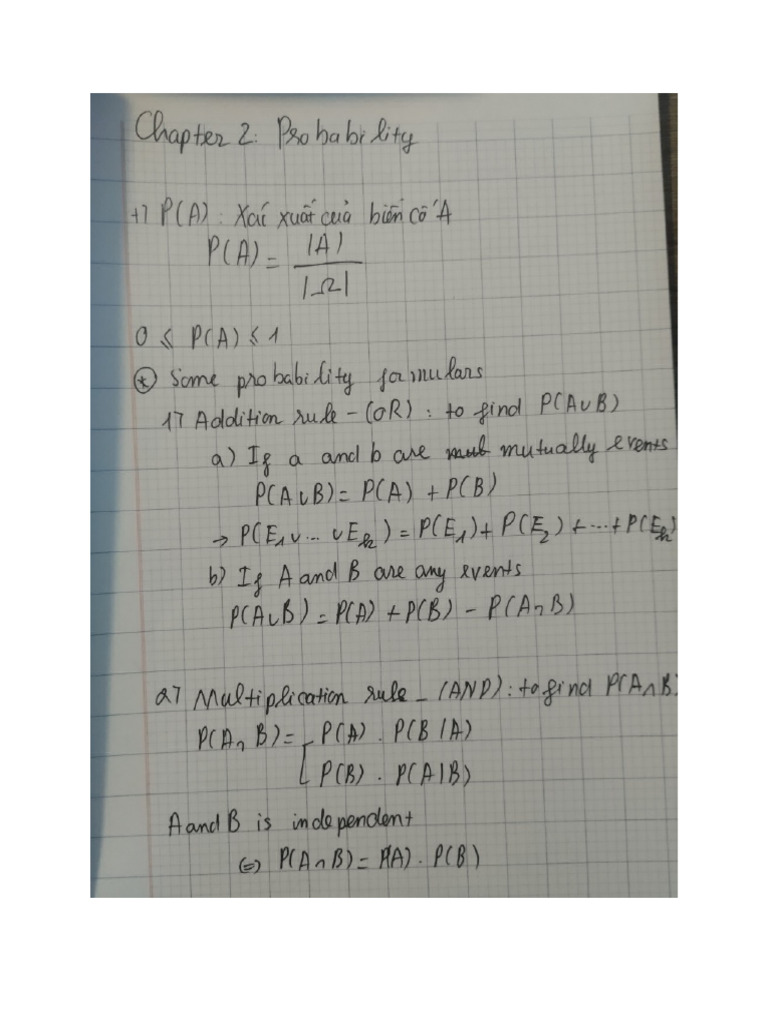 Chapter 2: Probability
+) P(A): Xác xuất của biến cố A
P(A) = |A| / |Ω|
0 ≤ P(A) ≤ 1
⊛ Some probability formulars
1) Addition rule - (OR): to find P(A∪B)
a) If a and b are mutually events
P(A∪B) = P(A) + P(B)
→ P(E₁∪... ∪Eₖ) = P(E₁) + P(E₂) + ... + P(Eₖ)
b) If A and B are any events
P(A∪B) = P(A) + P(B) - P(A∩B)
2) Multiplication rule - (AND): to find P(A∩B)
P(A∩B) = [ P(A) . P(B|A)
P(B) . P(A|B)
A and B is independent
⇔ P(A∩B) = P(A) . P(B)